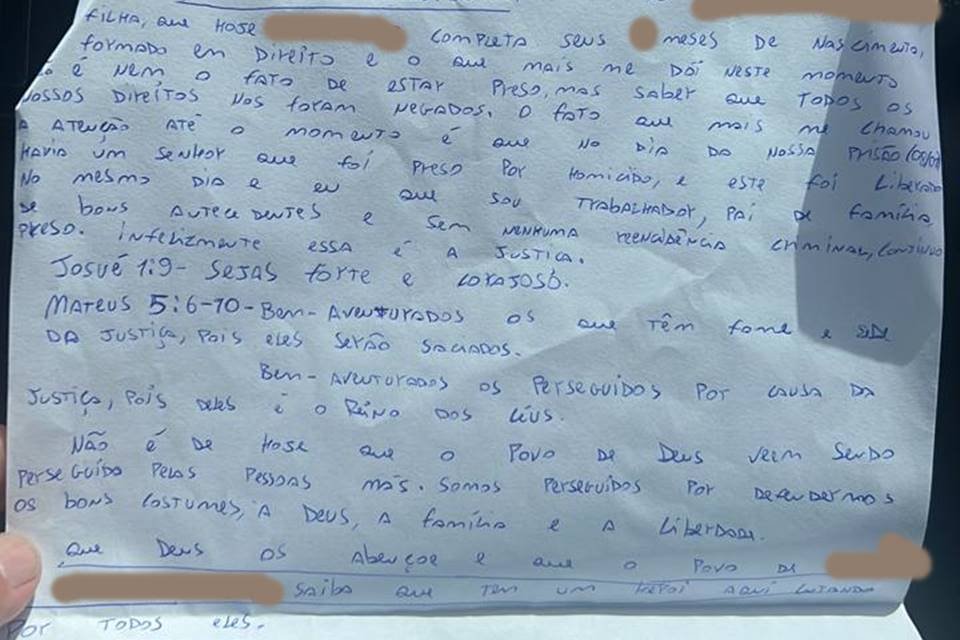 FILHA, QUE HOSE COMPLETA SEUS MESES DE NASCIMENTO,
FORMADO EM DIREITO E O QUE MAIS ME DÓI NESTE MOMENTO
É NEM O FATO DE ESTAR PRESO, MAS SABER QUE TODOS OS
NOSSOS DIREITOS NOS FORAM NEGADOS. O FATO QUE MAIS ME CHAMOU
A ATENÇÃO ATÉ O MOMENTO É QUE NO DIA DA NOSSA PRISÃO
HAVIA UM SENHOR QUE FOI PRESO POR HOMICIDO, E ESTE FOI LIBERADO
NO MESMO DIA E EU QUE SOU TRABALHADOR, PAI DE FAMÍLIA,
DE BONS ANTECEDENTES E SEM NENHUMA REENCIDÊNCIA CRIMINAL, CONTINUO
PRESO. INFELIZMENTE ESSA É A JUSTIÇA.
JOSUÉ 1:9- SEJAS FORTE E CORAJOSO.
MATEUS 5:6-10- BEM-AVENTURADOS OS QUE TÊM FOME E SEDE
DA JUSTIÇA, POIS ELES SERÃO SACIADOS.
BEM-AVENTURADOS OS PERSEGUIDOS POR CAUSA DA
JUSTIÇA, POIS DELES É O REINO DOS CÉUS.
NÃO É DE HOSE QUE O POVO DE DEUS VEEM SENDO
PERSEGUIDO PELAS PESSOAS MÁS. SOMOS PERSEGUIDOS POR DEFENDERMOS
OS BONS COSTUMES, A DEUS, A FAMÍLIA E A LIBERDADE.
QUE DEUS OS ABENÇOE E QUE O POVO DE
SAIBA QUE TEM UM HEROI AQUI LUTANDO
POR TODOS ELES.